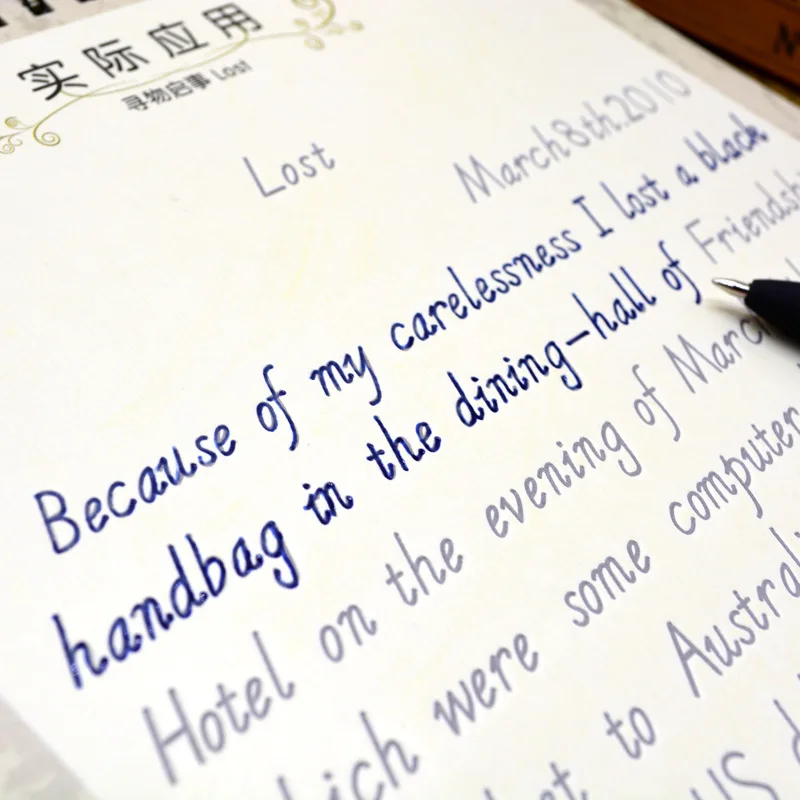 实际应用
寻物启事 Lost
Lost
March8th.2010
Because of my carelessness I lost a black
handbag in the dining-hall of
Hotel on the evening of
were some computer
to
US